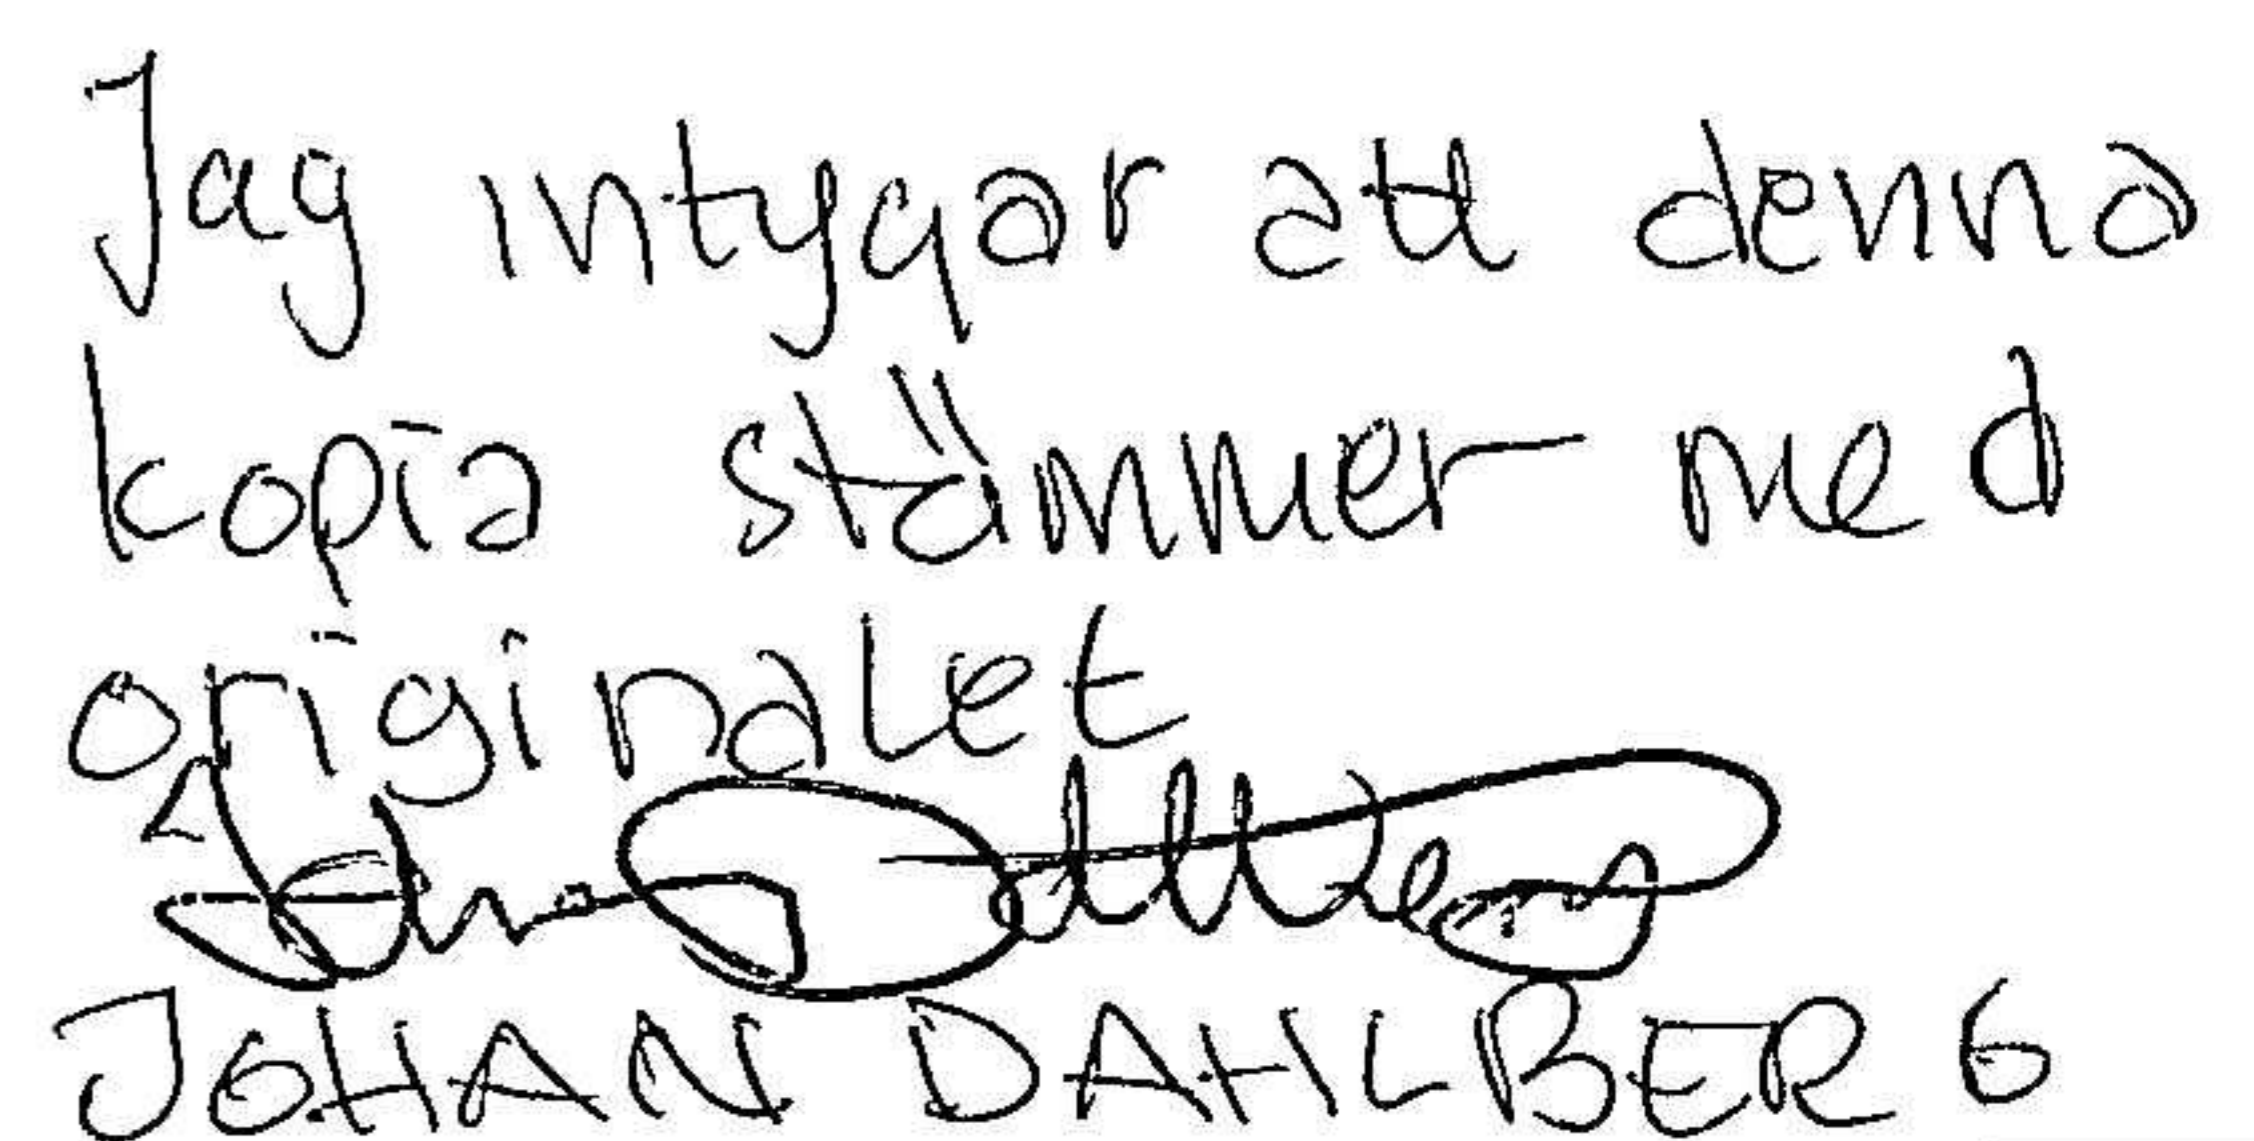 Jag intygar att denna
kopia stämmer med
originalet
JOHAN DAHLBERG